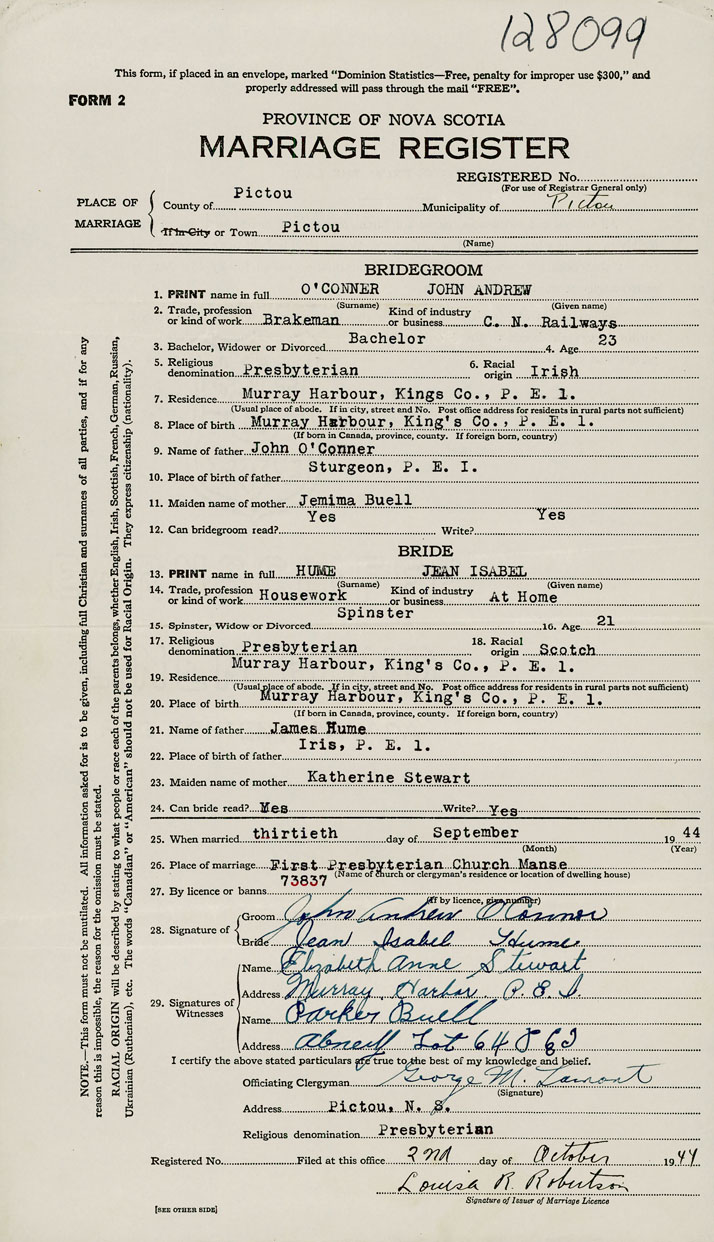 128099
This form, if placed in an envelope, marked "Dominion Statistics—Free, penalty for improper use $300," and
properly addressed will pass through the mail "FREE".
FORM 2
PROVINCE OF NOVA SCOTIA
MARRIAGE REGISTER
REGISTERED No.
(For use of Registrar General only)
PLACE OF MARRIAGE
County of Pictou Municipality of Pictou
If in City or Town Pictou
(Name)
BRIDEGROOM
1. PRINT name in full O'CONNER JOHN ANDREW
(Surname) (Given name)
2. Trade, profession or kind of work Brakeman Kind of industry or business C. N. Railways
3. Bachelor, Widower or Divorced Bachelor 4. Age 23
5. Religious denomination Presbyterian 6. Racial origin Irish
7. Residence Murray Harbour, Kings Co., P. E. l.
(Usual place of abode. If in city, street and No. Post office address for residents in rural parts not sufficient)
8. Place of birth Murray Harbour, King's Co., P. E. l.
(If born in Canada, province, county. If foreign born, country)
9. Name of father John O'Conner
10. Place of birth of father Sturgeon, P. E. I.
11. Maiden name of mother Jemima Buell
12. Can bridegroom read? Yes Write? Yes
BRIDE
13. PRINT name in full HUME JEAN ISABEL
(Surname) (Given name)
14. Trade, profession or kind of work Housework Kind of industry or business At Home
15. Spinster, Widow or Divorced Spinster 16. Age 21
17. Religious denomination Presbyterian 18. Racial origin Scotch
19. Residence Murray Harbour, King's Co., P. E. l.
(Usual place of abode. If in city, street and No. Post office address for residents in rural parts not sufficient)
20. Place of birth Murray Harbour, King's Co., P. E. l.
(If born in Canada, province, county. If foreign born, country)
21. Name of father James Hume
22. Place of birth of father Iris, P. E. l.
23. Maiden name of mother Katherine Stewart
24. Can bride read? Yes Write? Yes
25. When married thirtieth day of September 1944
(Month) (Year)
26. Place of marriage First Presbyterian Church Manse
(Name of church or clergyman's residence or location of dwelling house)
27. By licence or banns 73837
(If by licence, give number)
28. Signature of
Groom John Andrew O'Connor
Bride Jean Isabel Hume
29. Signatures of Witnesses
Name Elizabeth Anne Stewart
Address Murray Harbor, P. E. I.
Name Parker Buell
Address Abney Lot 64 P E I
I certify the above stated particulars are true to the best of my knowledge and belief.
Officiating Clergyman George M. Lamont
(Signature)
Address Pictou, N. S.
Religious denomination Presbyterian
Registered No. Filed at this office 2nd day of October 1944
Louisa R. Robertson
Signature of Issuer of Marriage Licence
[SEE OTHER SIDE]
NOTE.—This form must not be mutilated. All information asked for is to be given, including full Christian and surnames of all parties, and if for any
reason this is impossible, the reason for the omission must be stated.
RACIAL ORIGIN will be described by stating to what people or race each of the parents belongs, whether English, Irish, Scottish, French, German, Russian,
Ukrainian (Ruthenian), etc. The words "Canadian" or "American" should not be used for Racial Origin. They express citizenship (nationality).